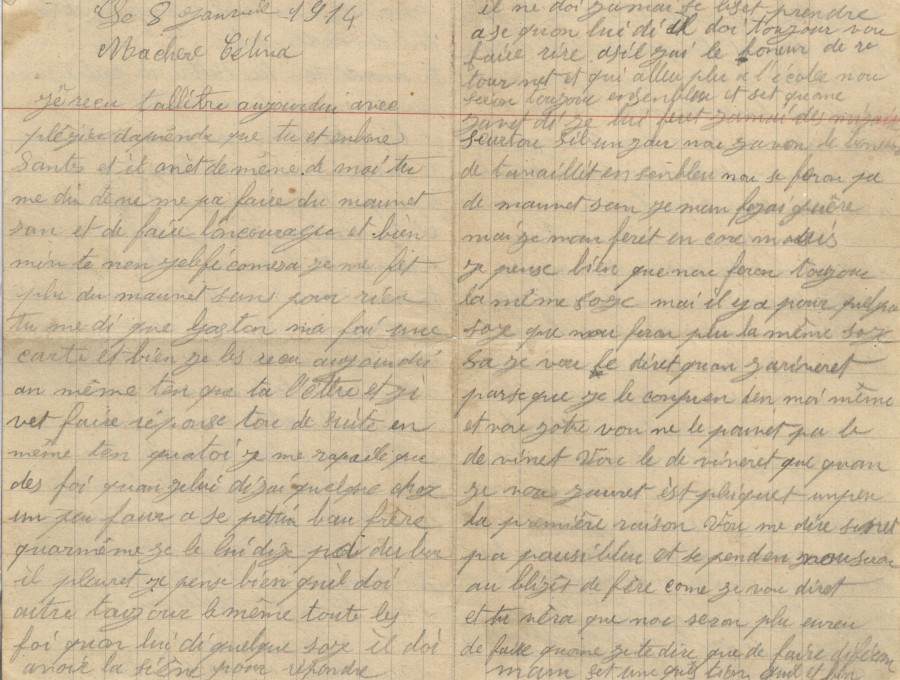 Le 8 Janvier 1914
Machere Célina
jé reçu ta llittre aujourdui avec
plézire daprendre que tu et enbone
Santé et il anèt de même de moi tu
me di de ne me pa faire du mauvet
san et de faire lencourager et bien
min te nen
plu du mauvet sans pour rien
tu me di que Gaston ma fai une
carte et bien ze les reçu aujourdui
an même ten que ta l'ettre et zi
vet faire réponse tou de suite en
même ten qua toi ze me rapaele que
des foi quan zelui dizai quelque choze
un peu faux a se petit bau frère
quarmême ze le lui dize
il pleuret ze pense bien quil doi
aitre touzour le même toute les
foi quon lui di quelque soze il doi
avoir la siène pour répondre
il ne doi zamai se léset prendre
a se quon lui di il doi toujour vou
faire rire asil zai le boneur de re
tour net et qui alleu plu a l'écolle nou
seron touzour ensenbleu et set quome
zavet di ze lui feret zamai de
seurtou sil un zour nou zavon le boneur
de travaillet en senbleu nou se feron pa
de mauvet san ze man fezai guère
mai ze man feret en core moins
ze pense bien que nou feron touzour
la même soze mai il y a pour quelque
soze que nou feron plu la même soze
sa ze vou le diret quan zariveret
parse que ze le conpren ben moi même
et vou zotre vou ne le pouvet pa le
de vinet vou le de vineret que quan
ze vou zauret èst pliquet unpeu
la première raison vou me dire se net
pa pausibleu et se penden nou seron
au blizét de fére come ze vou diret
et tu véra que nou seron plu eureu
de faire quome ze te dire que de faire
mam set une